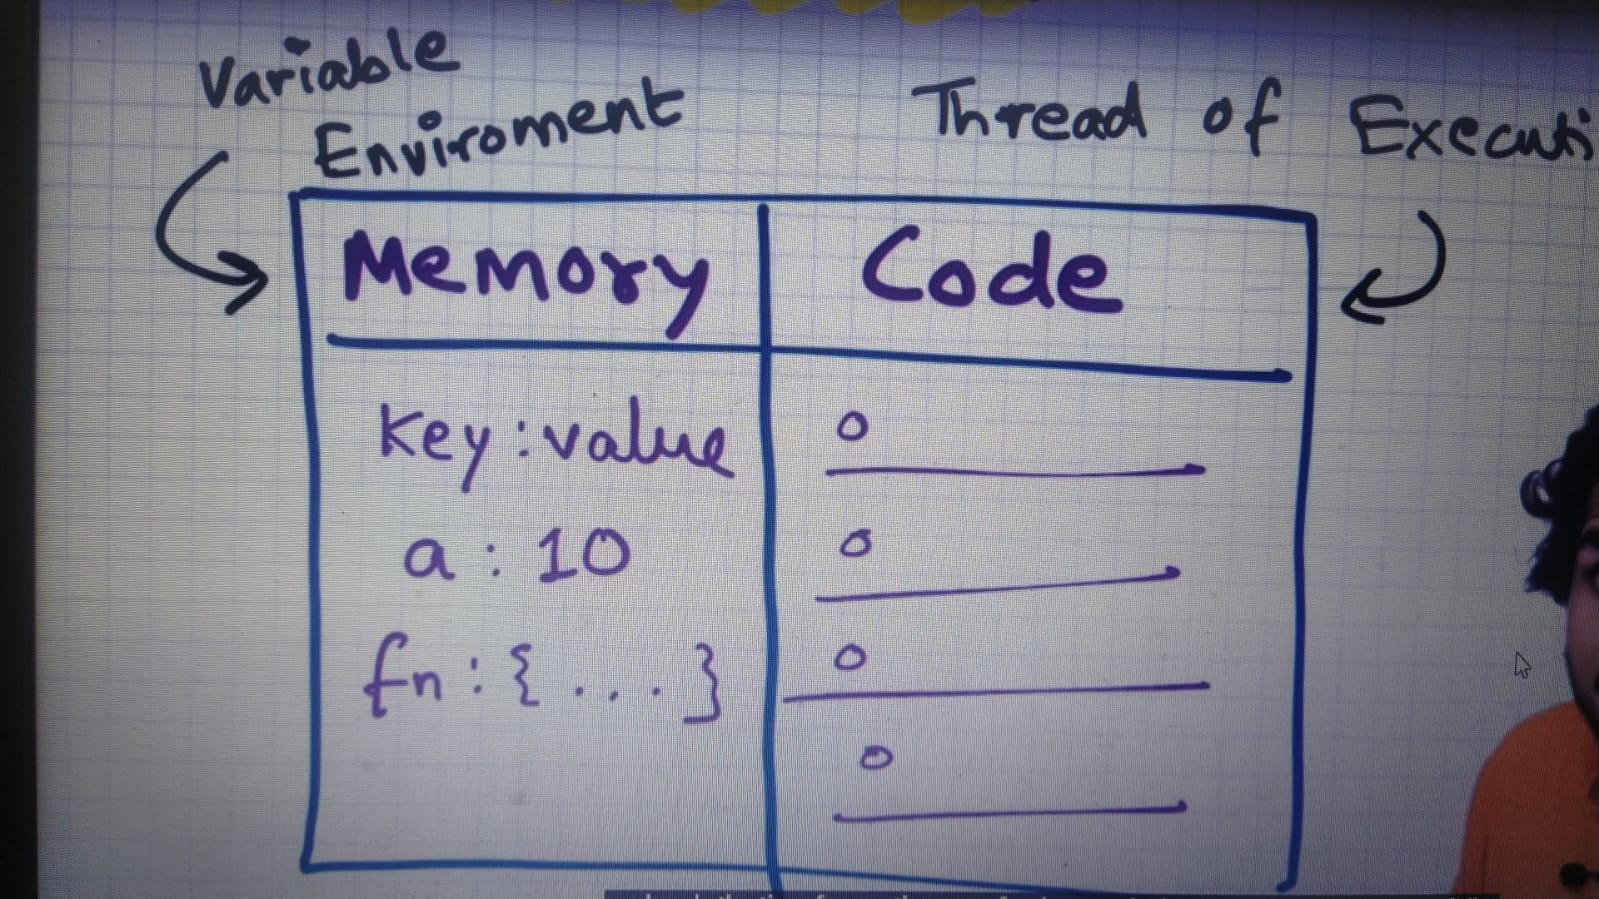 Variable
Enviroment
Thread of Executi
Memory
Code
key:value
a : 10
fn : { ... }